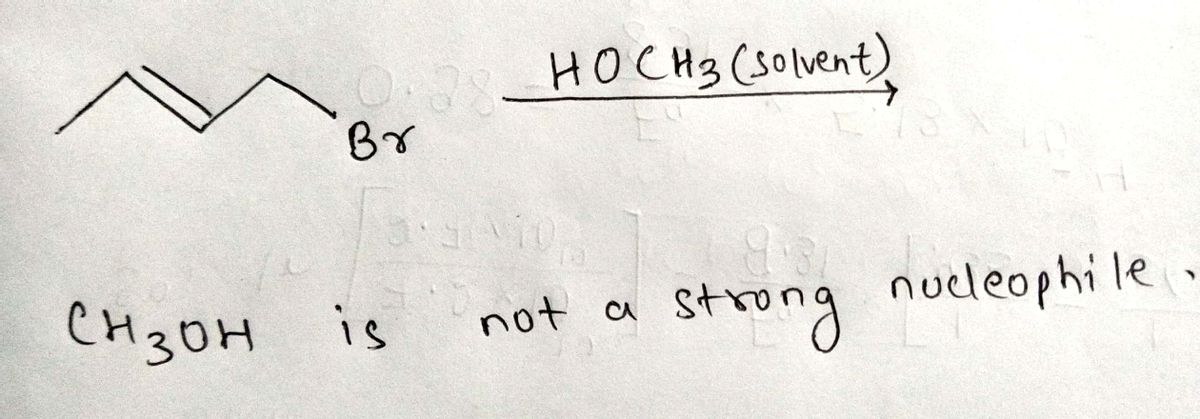 HOCH3 (solvent)
Br
CH3OH is not a strong nucleophile.